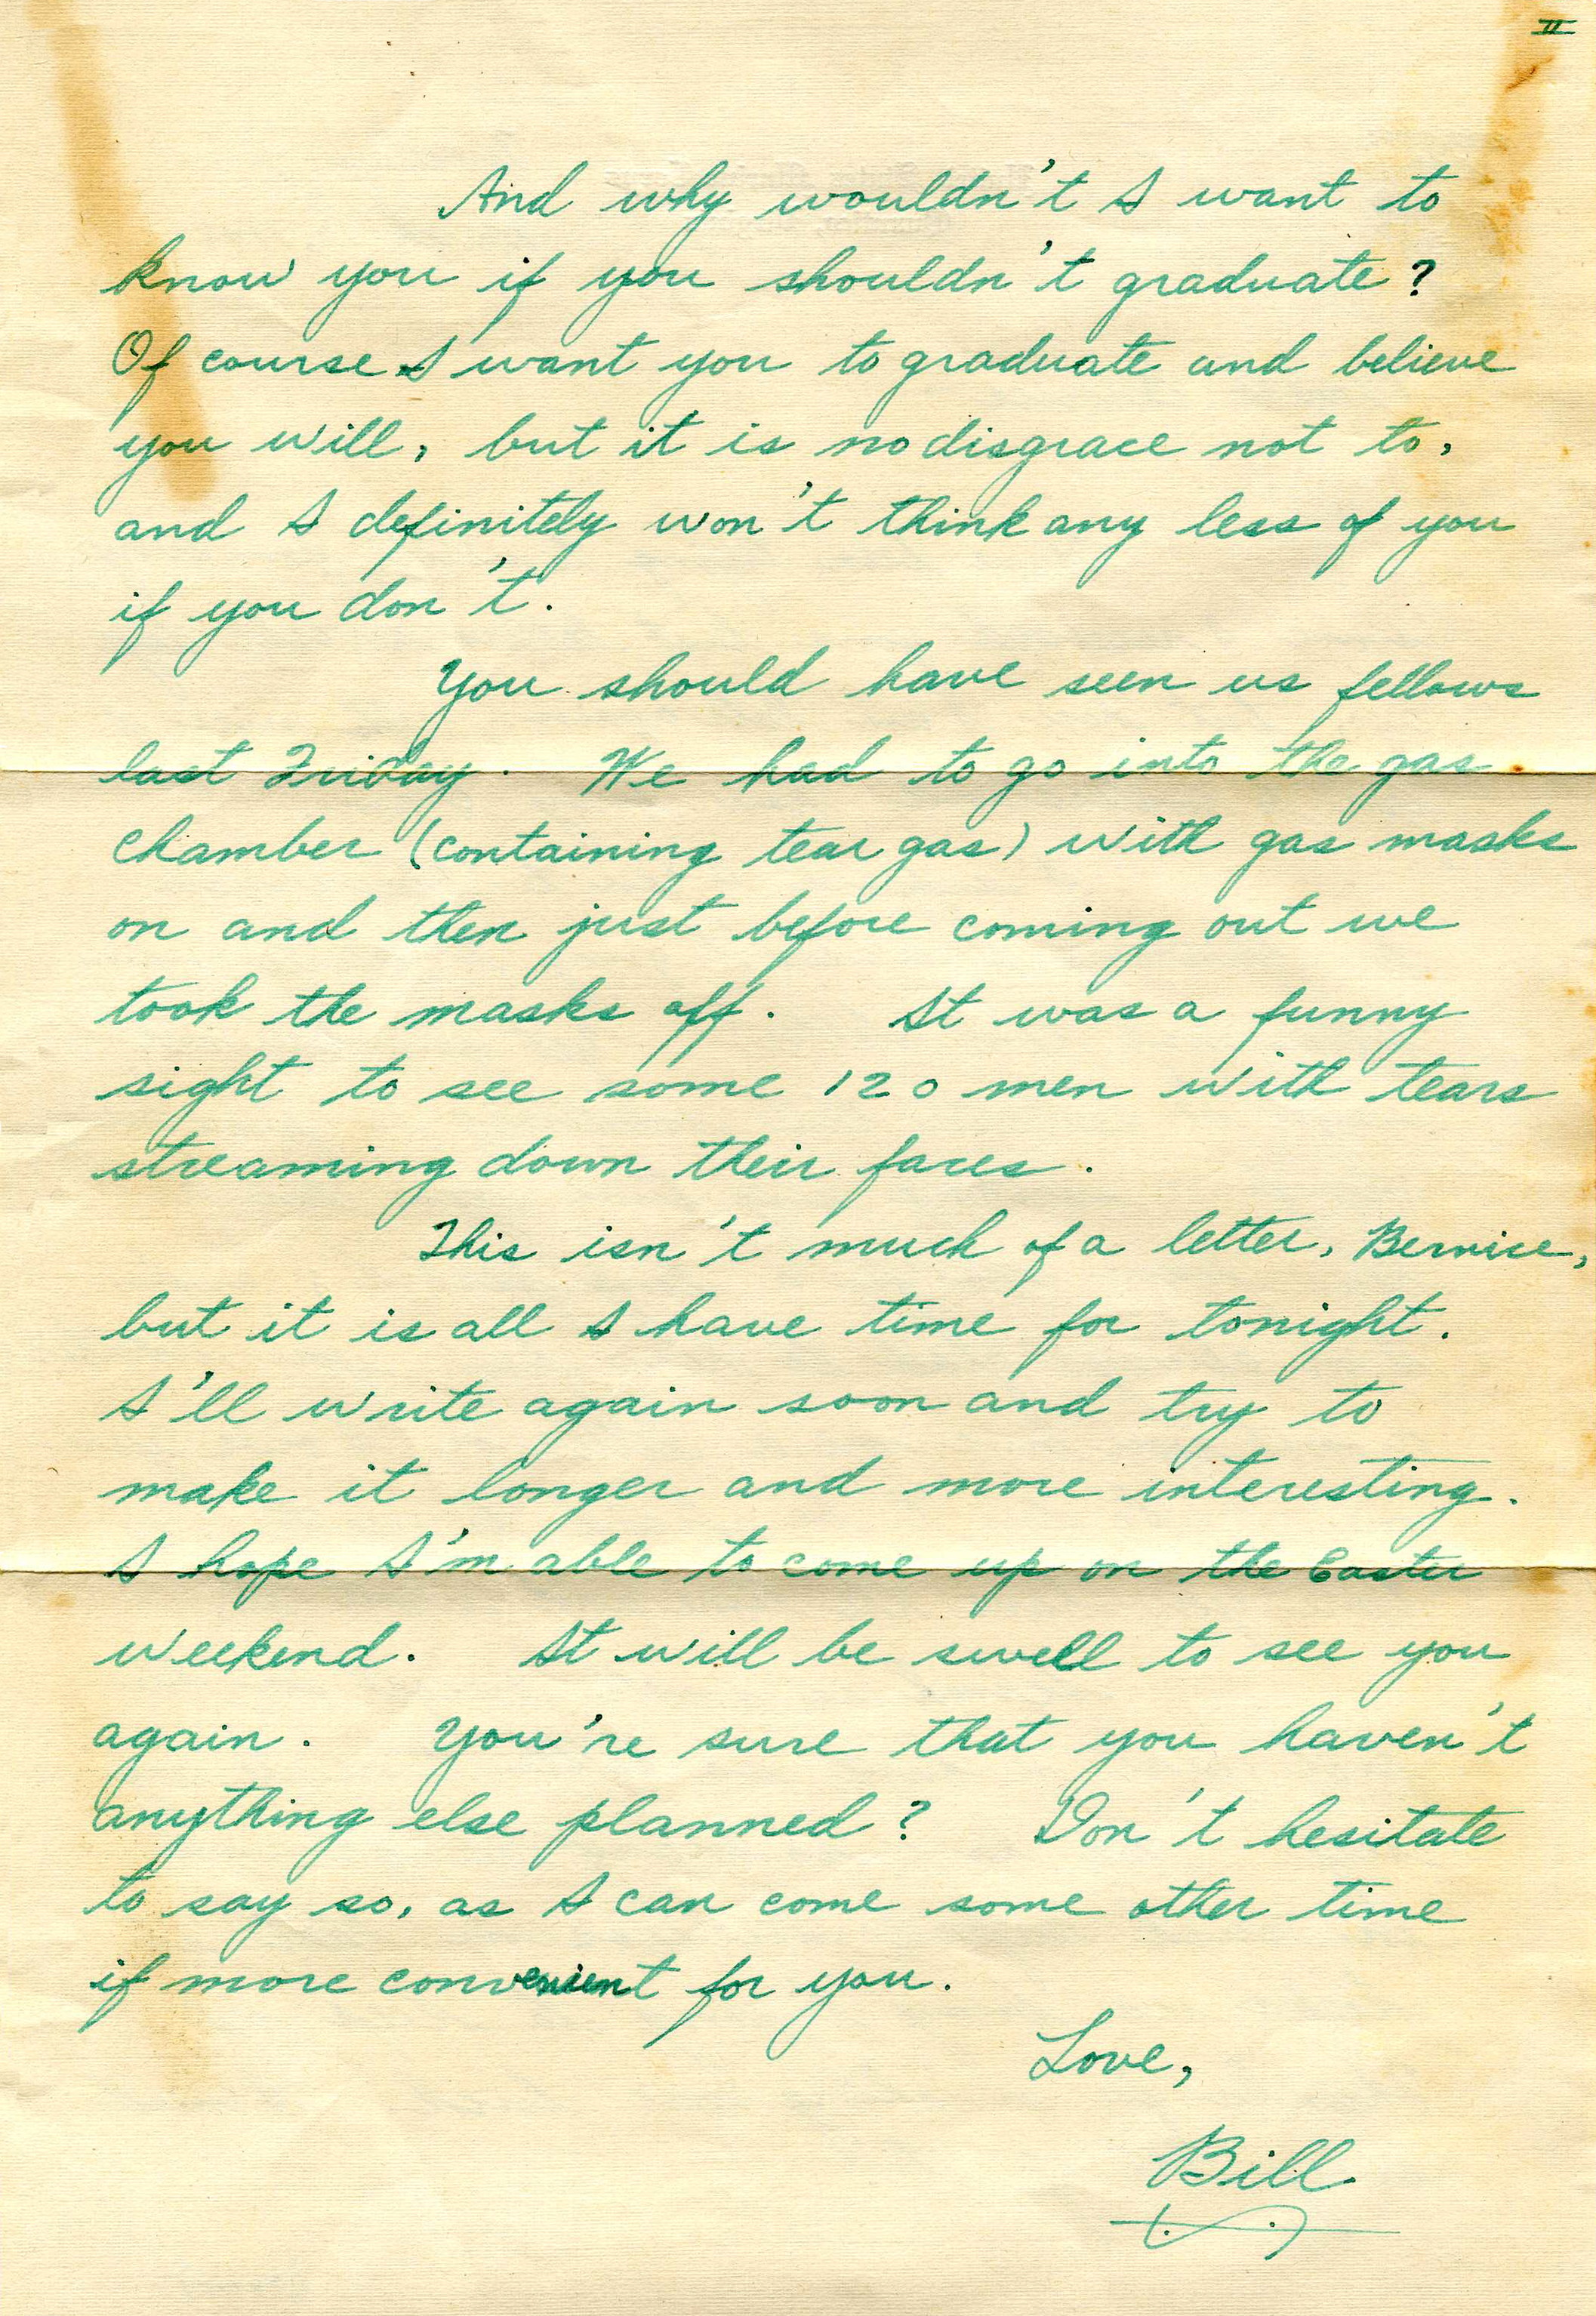 II
And why wouldn't I want to
know you if you shouldn't graduate?
Of course I want you to graduate and believe
you will, but it is no disgrace not to,
and I definitely won't think any less of you
if you don't.
You should have seen us fellows
last Friday. We had to go into the gas
chamber (containing tear gas) with gas masks
on and then just before coming out we
took the masks off. It was a funny
sight to see some 120 men with tears
streaming down their faces.
This isn't much of a letter, Bernice,
but it is all I have time for tonight.
I'll write again soon and try to
make it longer and more interesting.
I hope I'm able to come up on the Easter
weekend. It will be swell to see you
again. You're sure that you haven't
anything else planned? Don't hesitate
to say so, as I can come some other time
if more convenient for you.
Love,
Bill